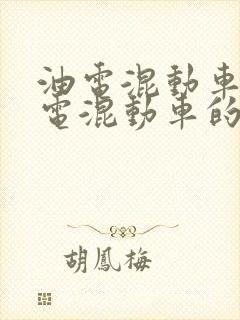 油電混動車
電混動車的
胡鳳梅